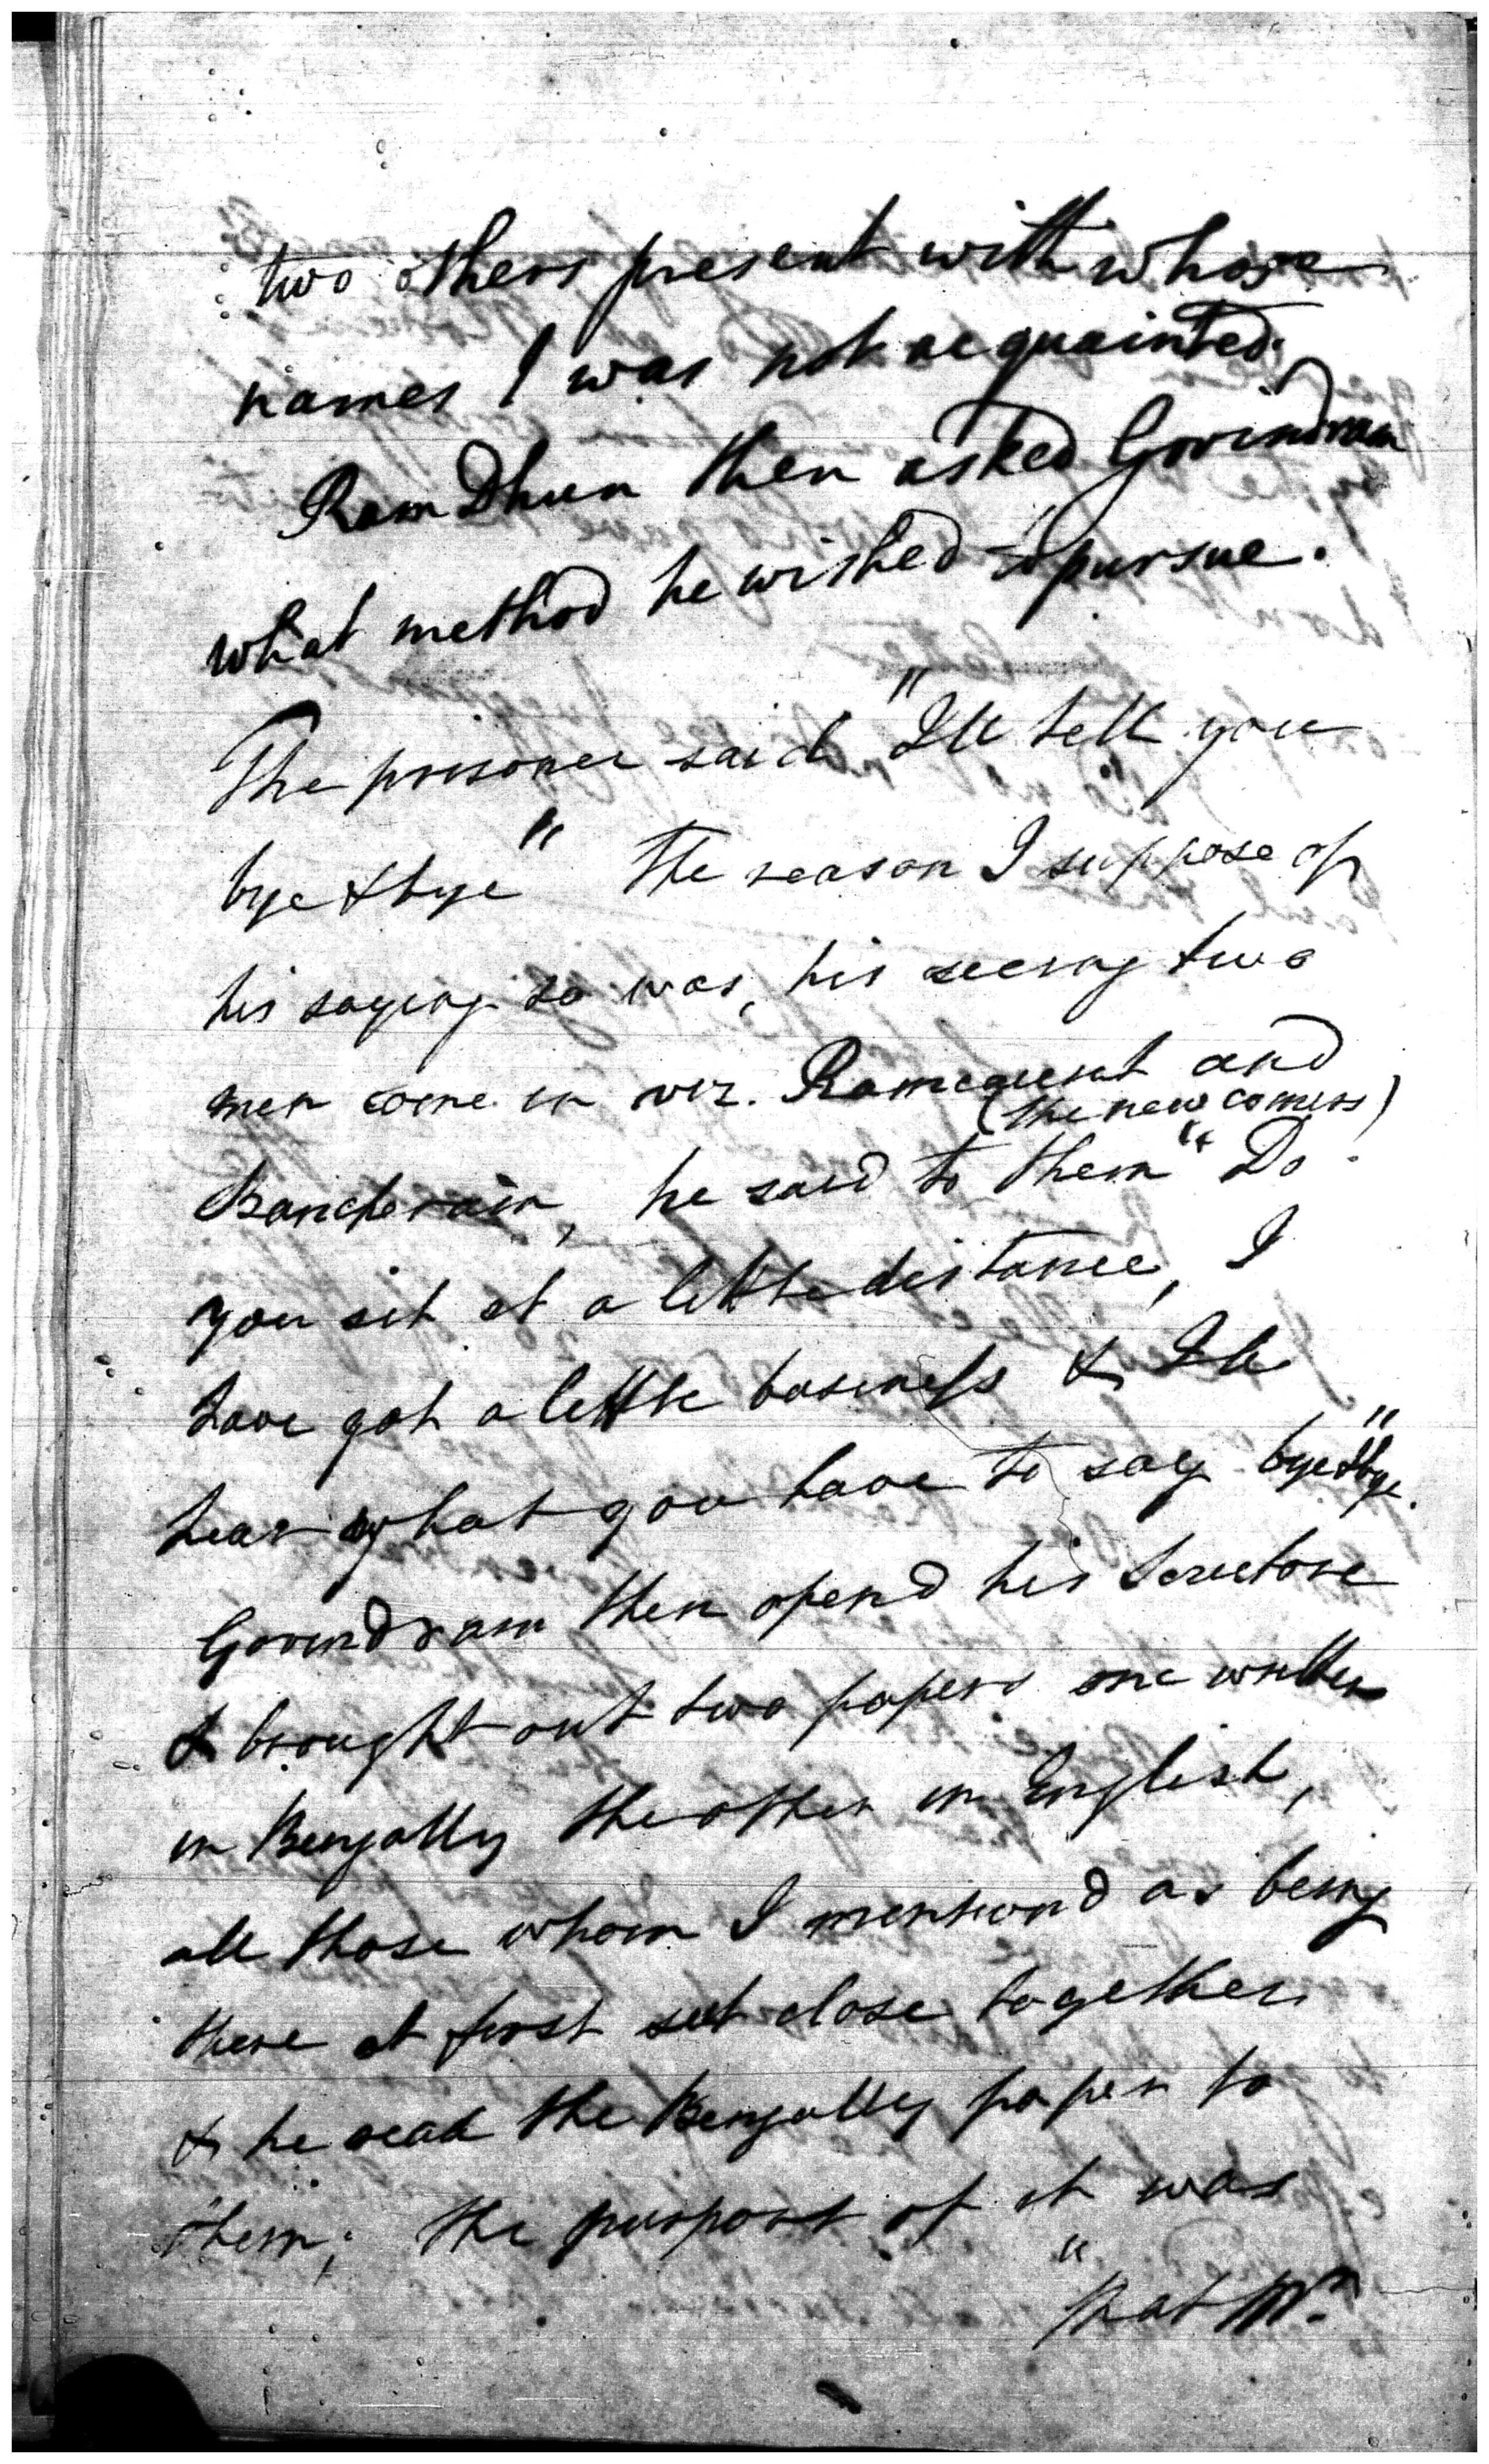 two others present with whose
names I was not acquainted.
Ram Dhun then asked Govindram
what method he wished to pursue.
The prisoner said "Ill tell you
bye & bye" The reason I suppose of
his saying so was, his seeing two
men come in viz. Ramcaunt and
(the new comers)
Bancheram, he said to them "Do
you sit at a little distance, I
have got a little business & Ile
hear what you have to say bye & bye."
Govindram then opend his Scrutore
& brought out two papers one written
in Bengally the other in English,
all those whom I mentiond as being
there at first sat close together
& he read the Bengally paper to
them; the purport of it was
"that Mr.